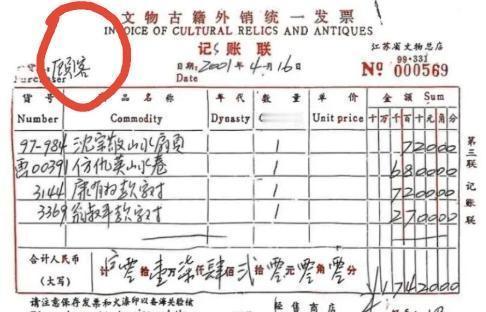 文物古籍外销统一发票
INVOICE OF CULTURAL RELICS AND ANTIQUES
记账联
江苏省文物总店
顾客
Purchaser
日期: 2001年4月16
Date
99·331
Nº 000569
货号 商品名称 年代 数量 单价 金额 Sum
Number Commodity Dynasty Unit price 十万千百十元角分
97-984 沈宗敬山水扇页 1 72000
曹00391 仿仇英山水卷 1 680000
3144 康有为款字对 1 720000
3369 翁叔平款字对 1 270000
合计人民币
(大写)
计 零拾壹万柒仟肆佰贰拾零元零角零分 ¥1742000
第三联 记账联
请注意保存发票和火漆印以备海关验核
经售商店